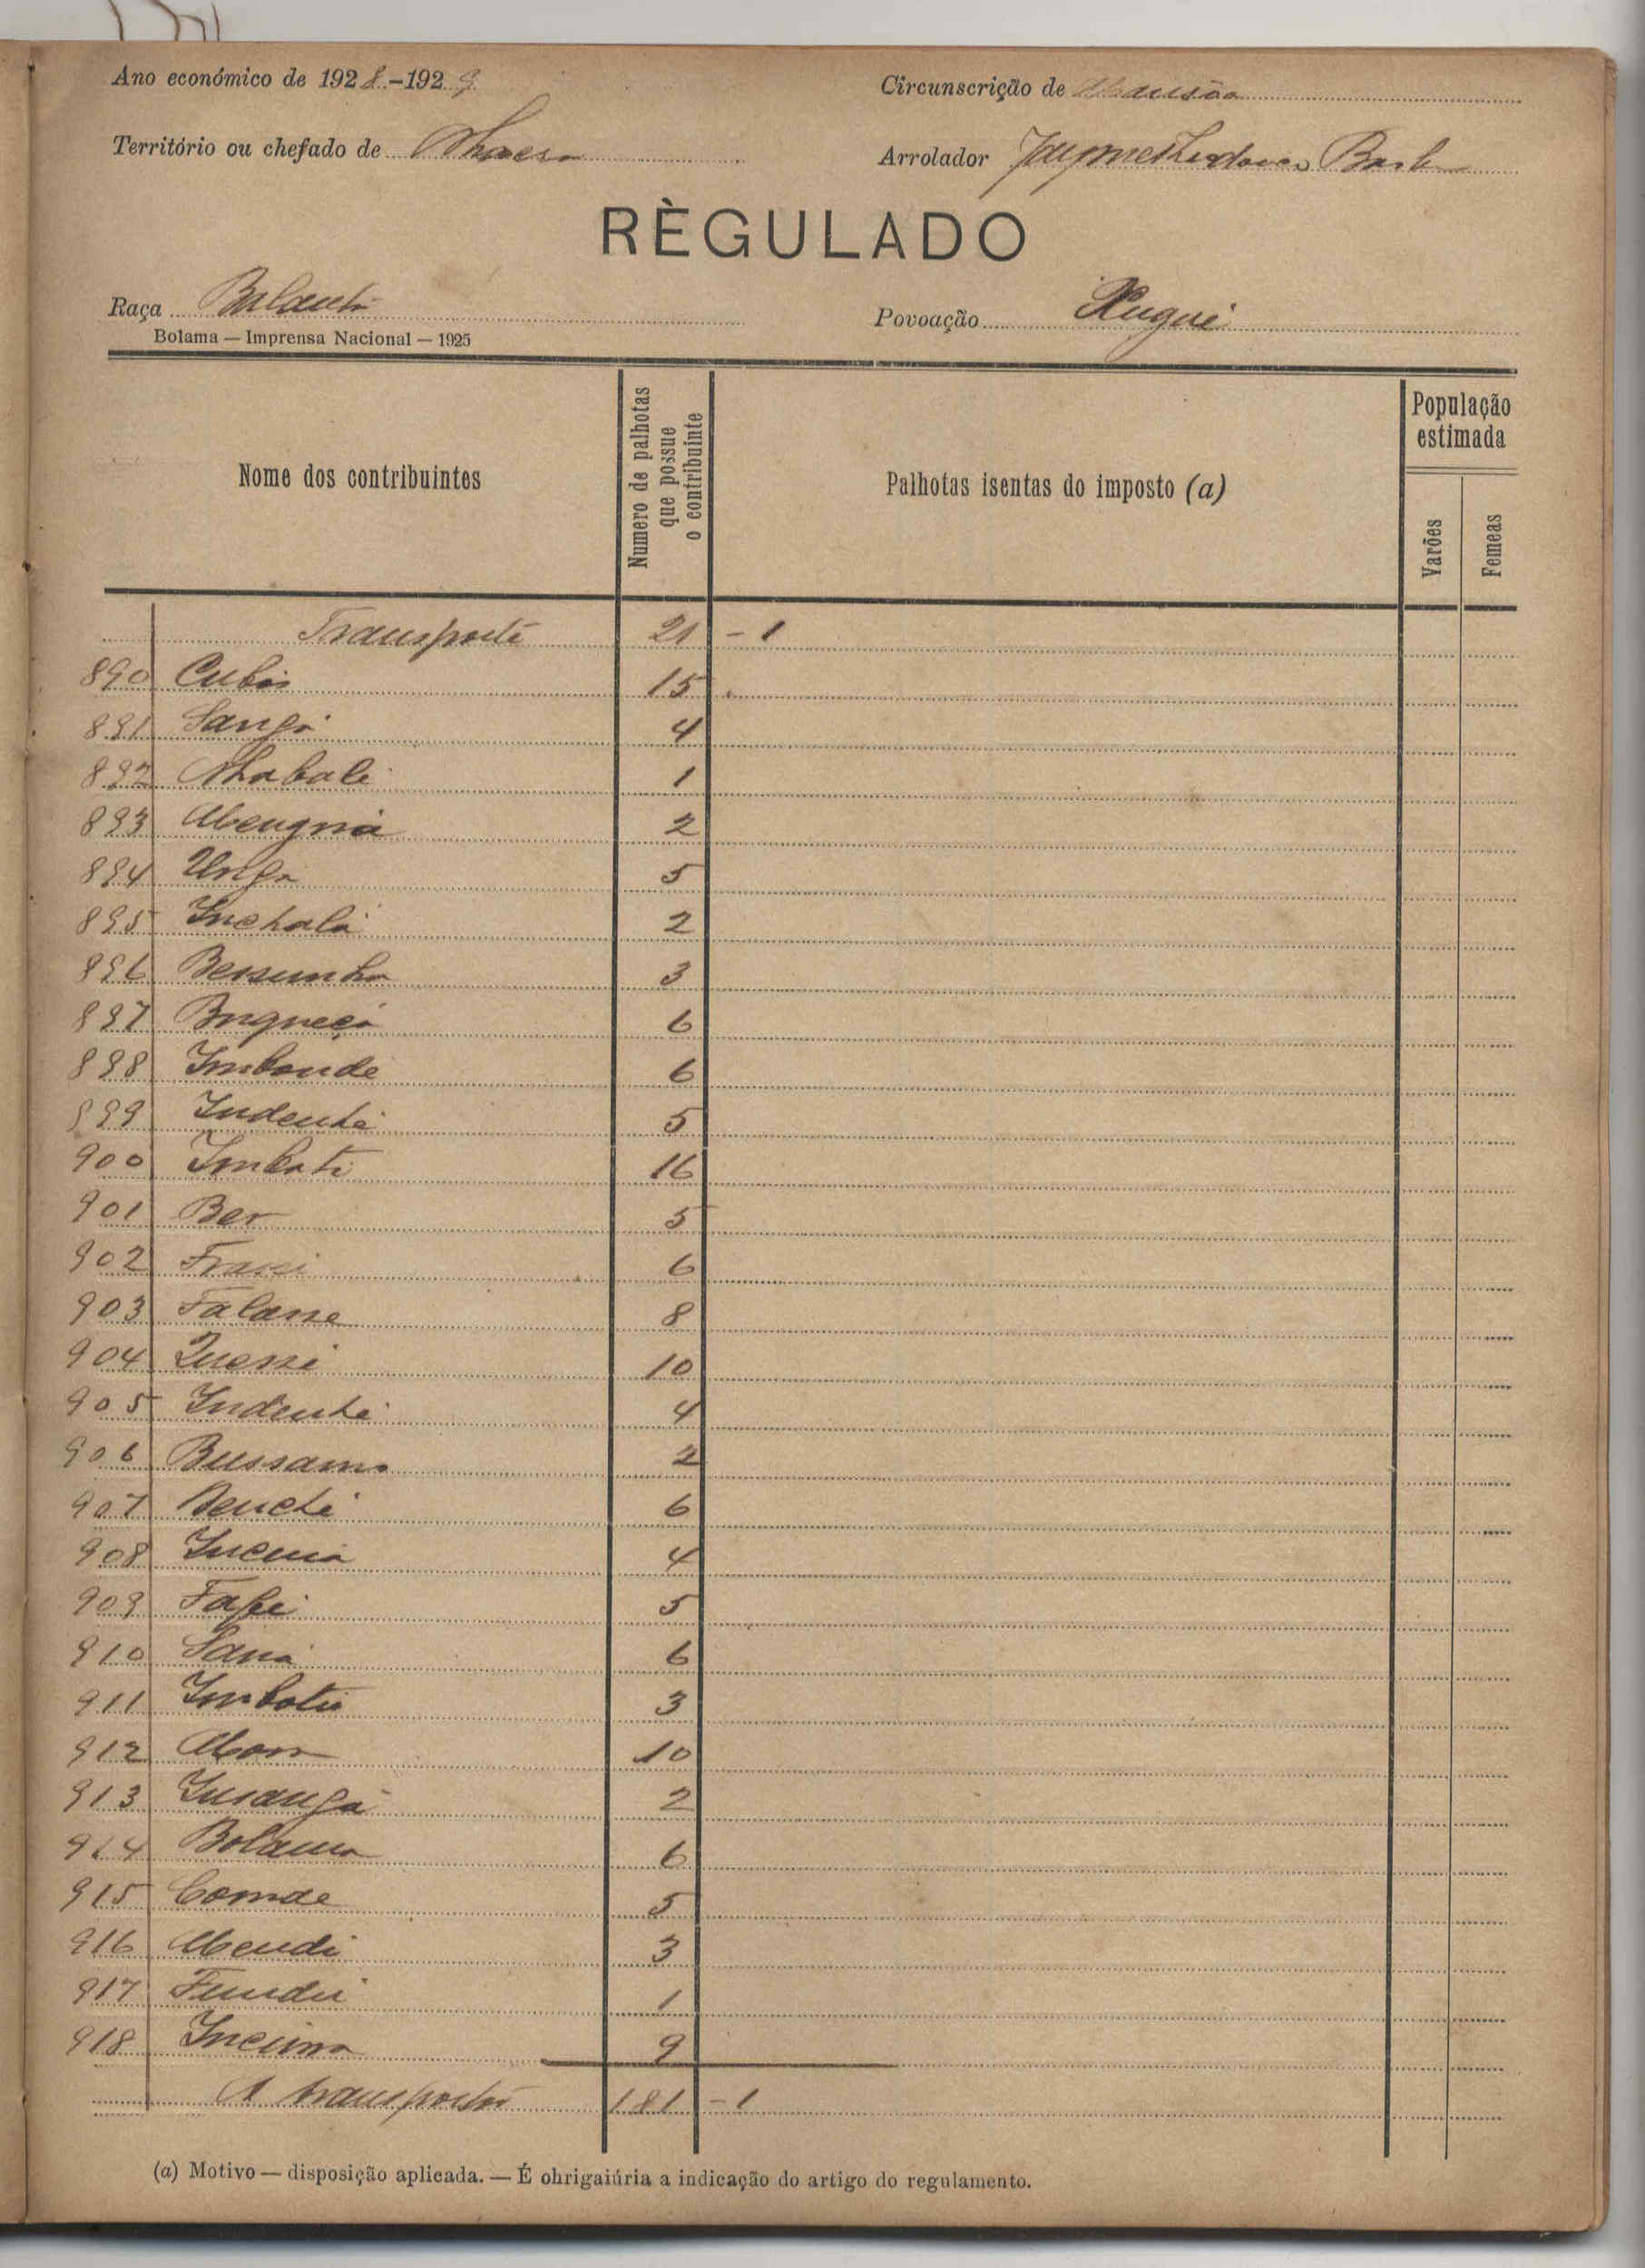 Ano económico de 1928-1929
Circunscrição de
Território ou chefado de Nhaera
Arrolador Jayme
RÈGULADO
Raça Balanta
Povoação Rugué
Bolama — Imprensa Nacional — 1925
Nome dos contribuintes
Numero de palhotas que possue o contribuinte
Palhotas isentas do imposto (a)
População estimada
Varões
Femeas
Transporte 21 - 1
890 Cubis 15
891 Sanfá 4
892 Nhabali 1
893 2
894 Unfa 5
895 Inchalá 2
896 Bessunha 3
897 6
898 Imbonde 6
899 Indenhé 5
900 Imbati 16
901 Ber 5
902 Frassi 6
903 Falasse 8
904 Quessi 10
905 Indenhé 4
906 Bussamo 2
907 6
908 4
909 Fafé 5
910 Saná 6
911 Imbotu 3
912 10
913 Insanfá 2
914 Bolama 6
915 Comde 5
916 3
917 Fundú 1
918 9
A transportar 181 - 1
(a) Motivo — disposição aplicada. — É ohrigaiúria a indicação do artigo do regulamento.